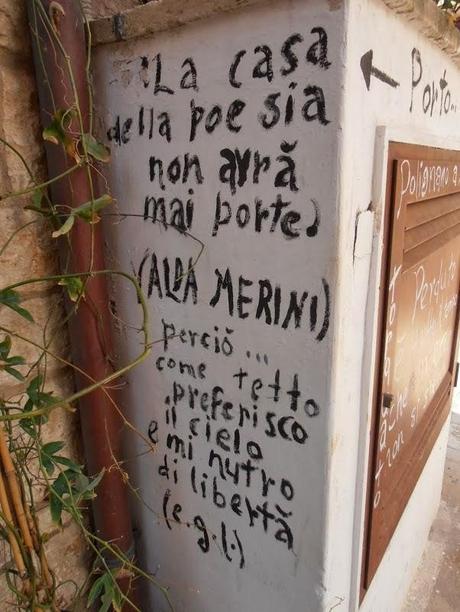 "La casa
della poesia
non avrà
mai porte"
(ALDA MERINI)
perciò...
come tetto
preferisco
il cielo
e mi nutro
di libertà
(e.g.l.)
← Porto..
Polignano a
Perdut